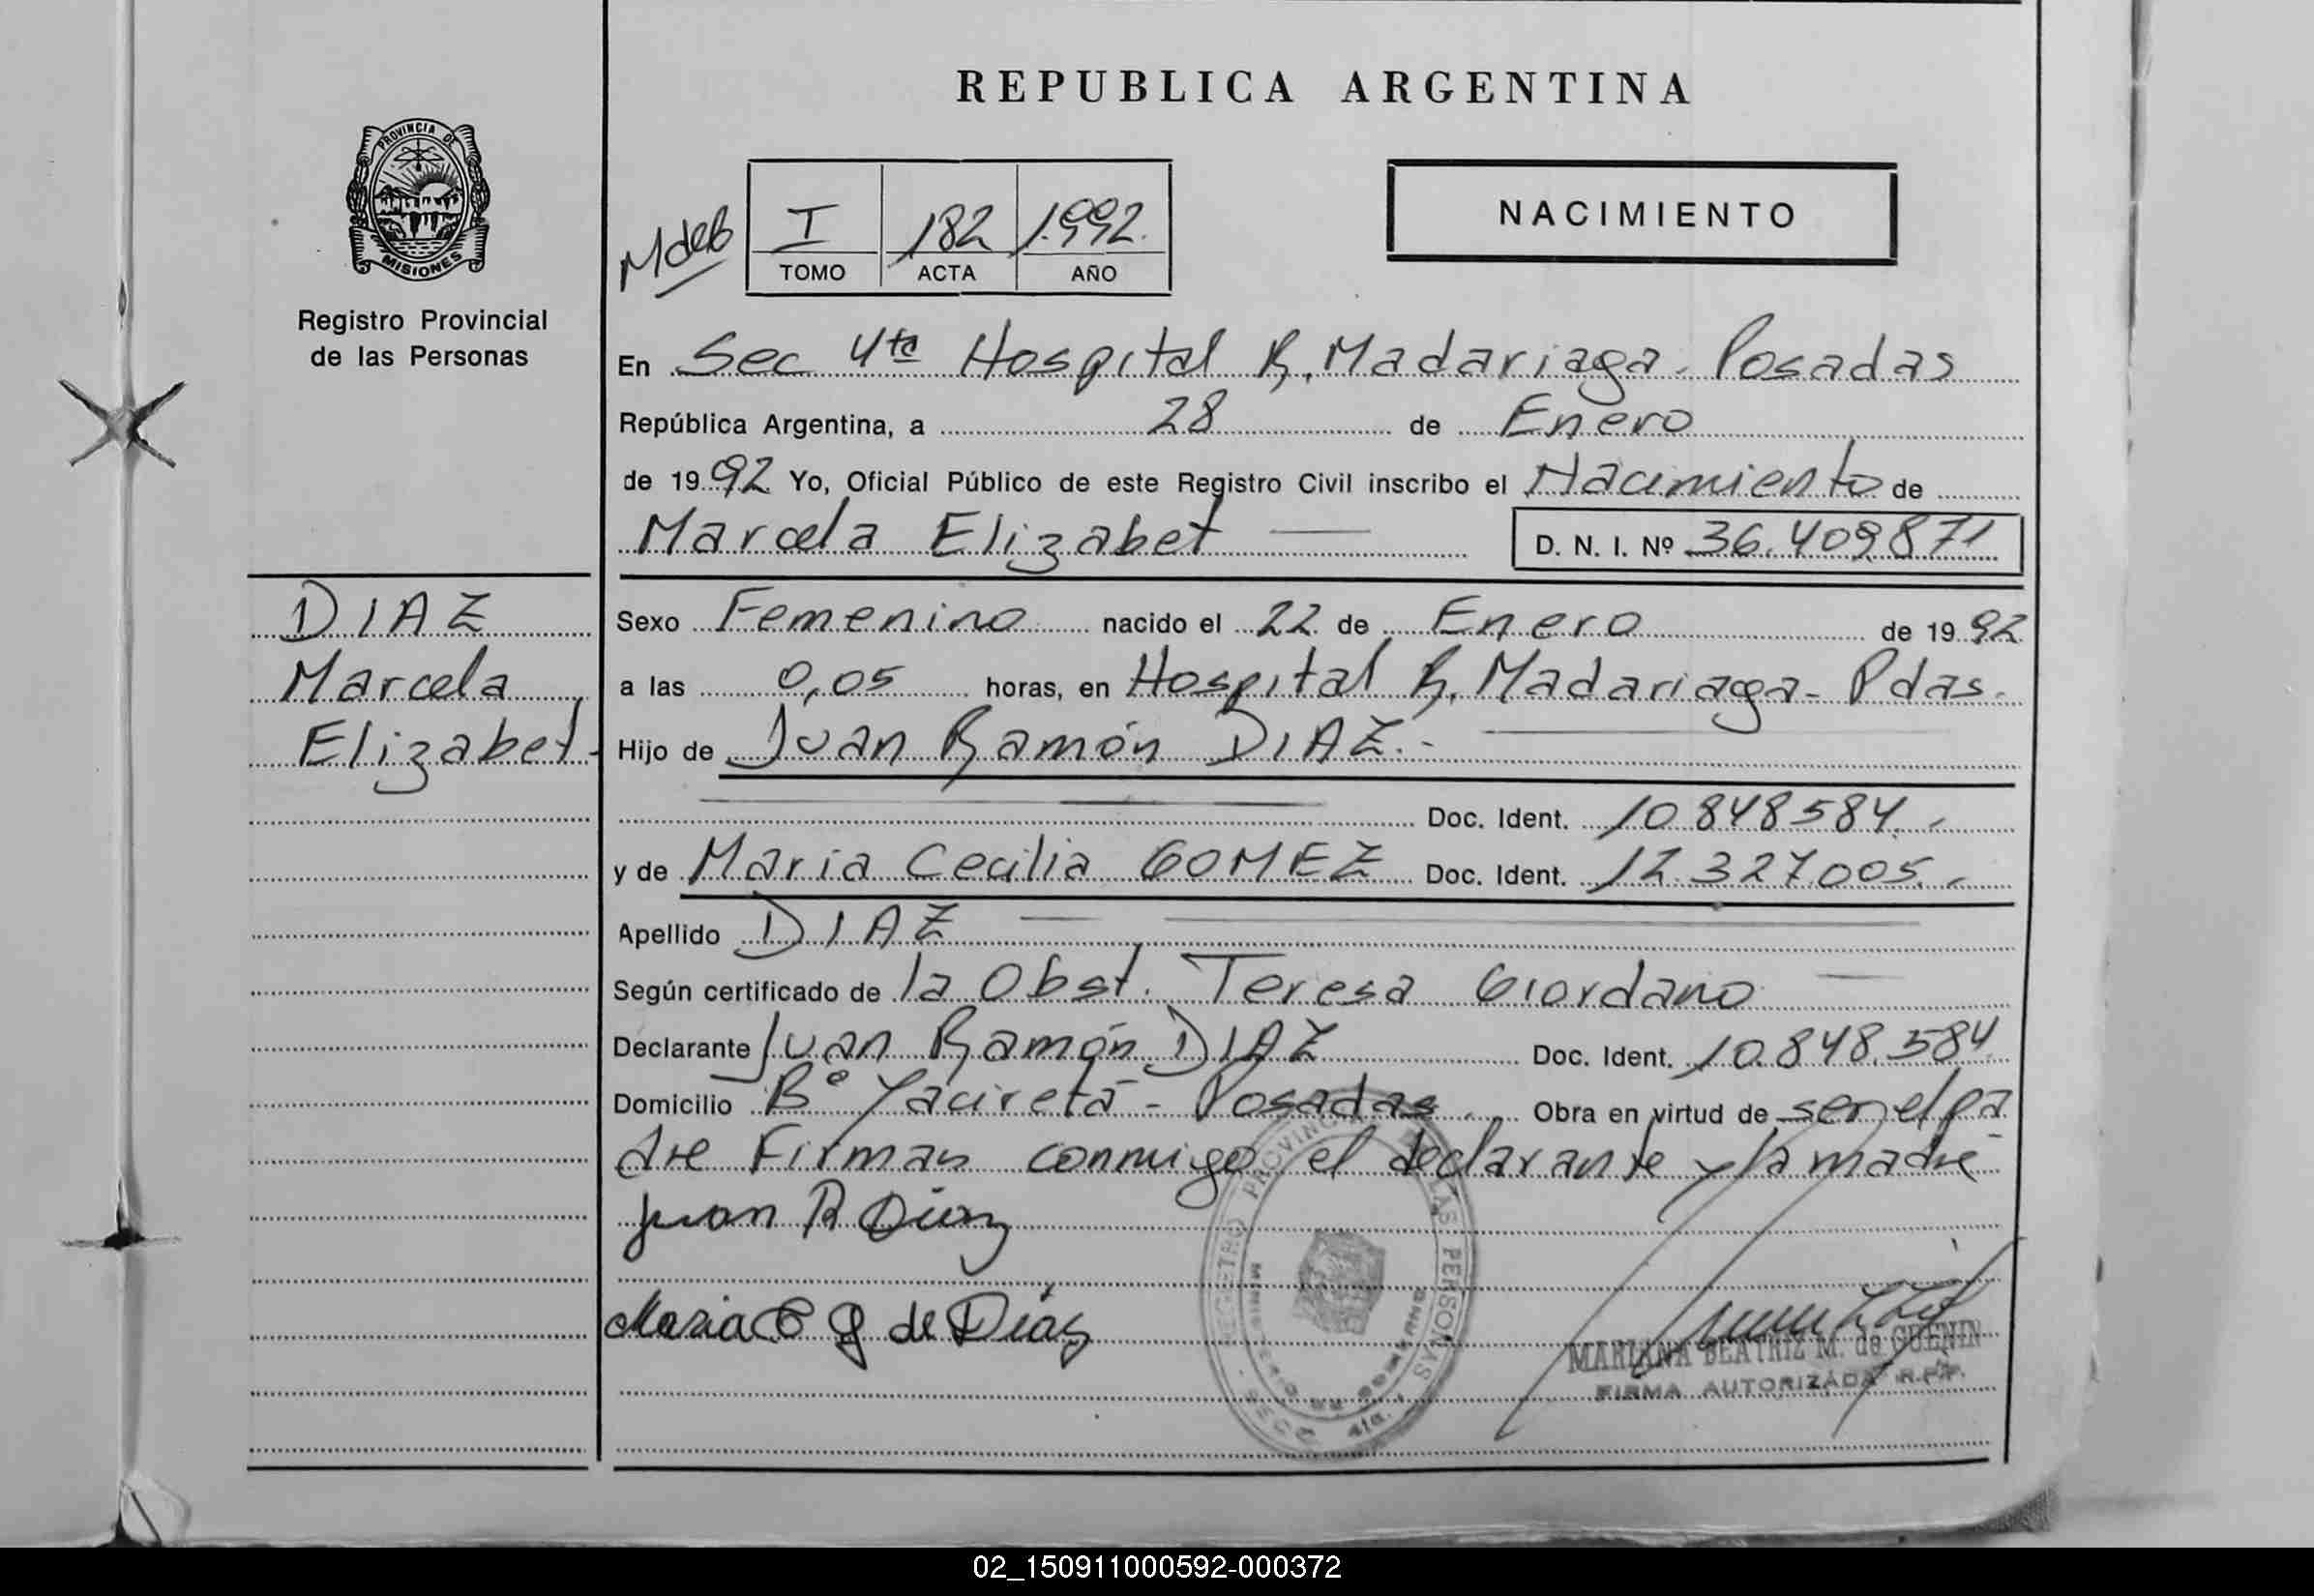 REPUBLICA ARGENTINA
PROVINCIA DE
MISIONES
Registro Provincial
de las Personas
MdeG
I 182 1.992.
TOMO ACTA AÑO
NACIMIENTO
En Sec 4ta Hospital R. Madariaga. Posadas
República Argentina, a 28 de Enero
de 1992 Yo, Oficial Público de este Registro Civil inscribo el Nacimiento de
Marcela Elizabet D. N. I. Nº 36.409871
DIAZ
Marcela
Elizabet.
Sexo Femenino nacido el 22 de Enero de 1992
a las 0,05 horas, en Hospital R. Madariaga- Pdas.
Hijo de Juan Ramón DIAZ.-
Doc. Ident. 10848584.-
y de Maria Cecilia GOMEZ Doc. Ident. 12.327005.-
Apellido DIAZ
Según certificado de la Obst. Teresa Giordano
Declarante Juan Ramón DIAZ Doc. Ident. 10.848.584
Domicilio Bº Yacireta - Posadas. Obra en virtud de ser el pa
dre Firman conmigo el declarante y la madre
Juan R Diaz
Maria C G de Díaz
REGISTRO PROVINCIAL DE LAS PERSONAS
MINISTERIO DE GOBIERNO
SECC. 4ta.
MARIANA BEATRIZ M. de GUENIN
FIRMA AUTORIZADA R.P.P.
02_150911000592-000372